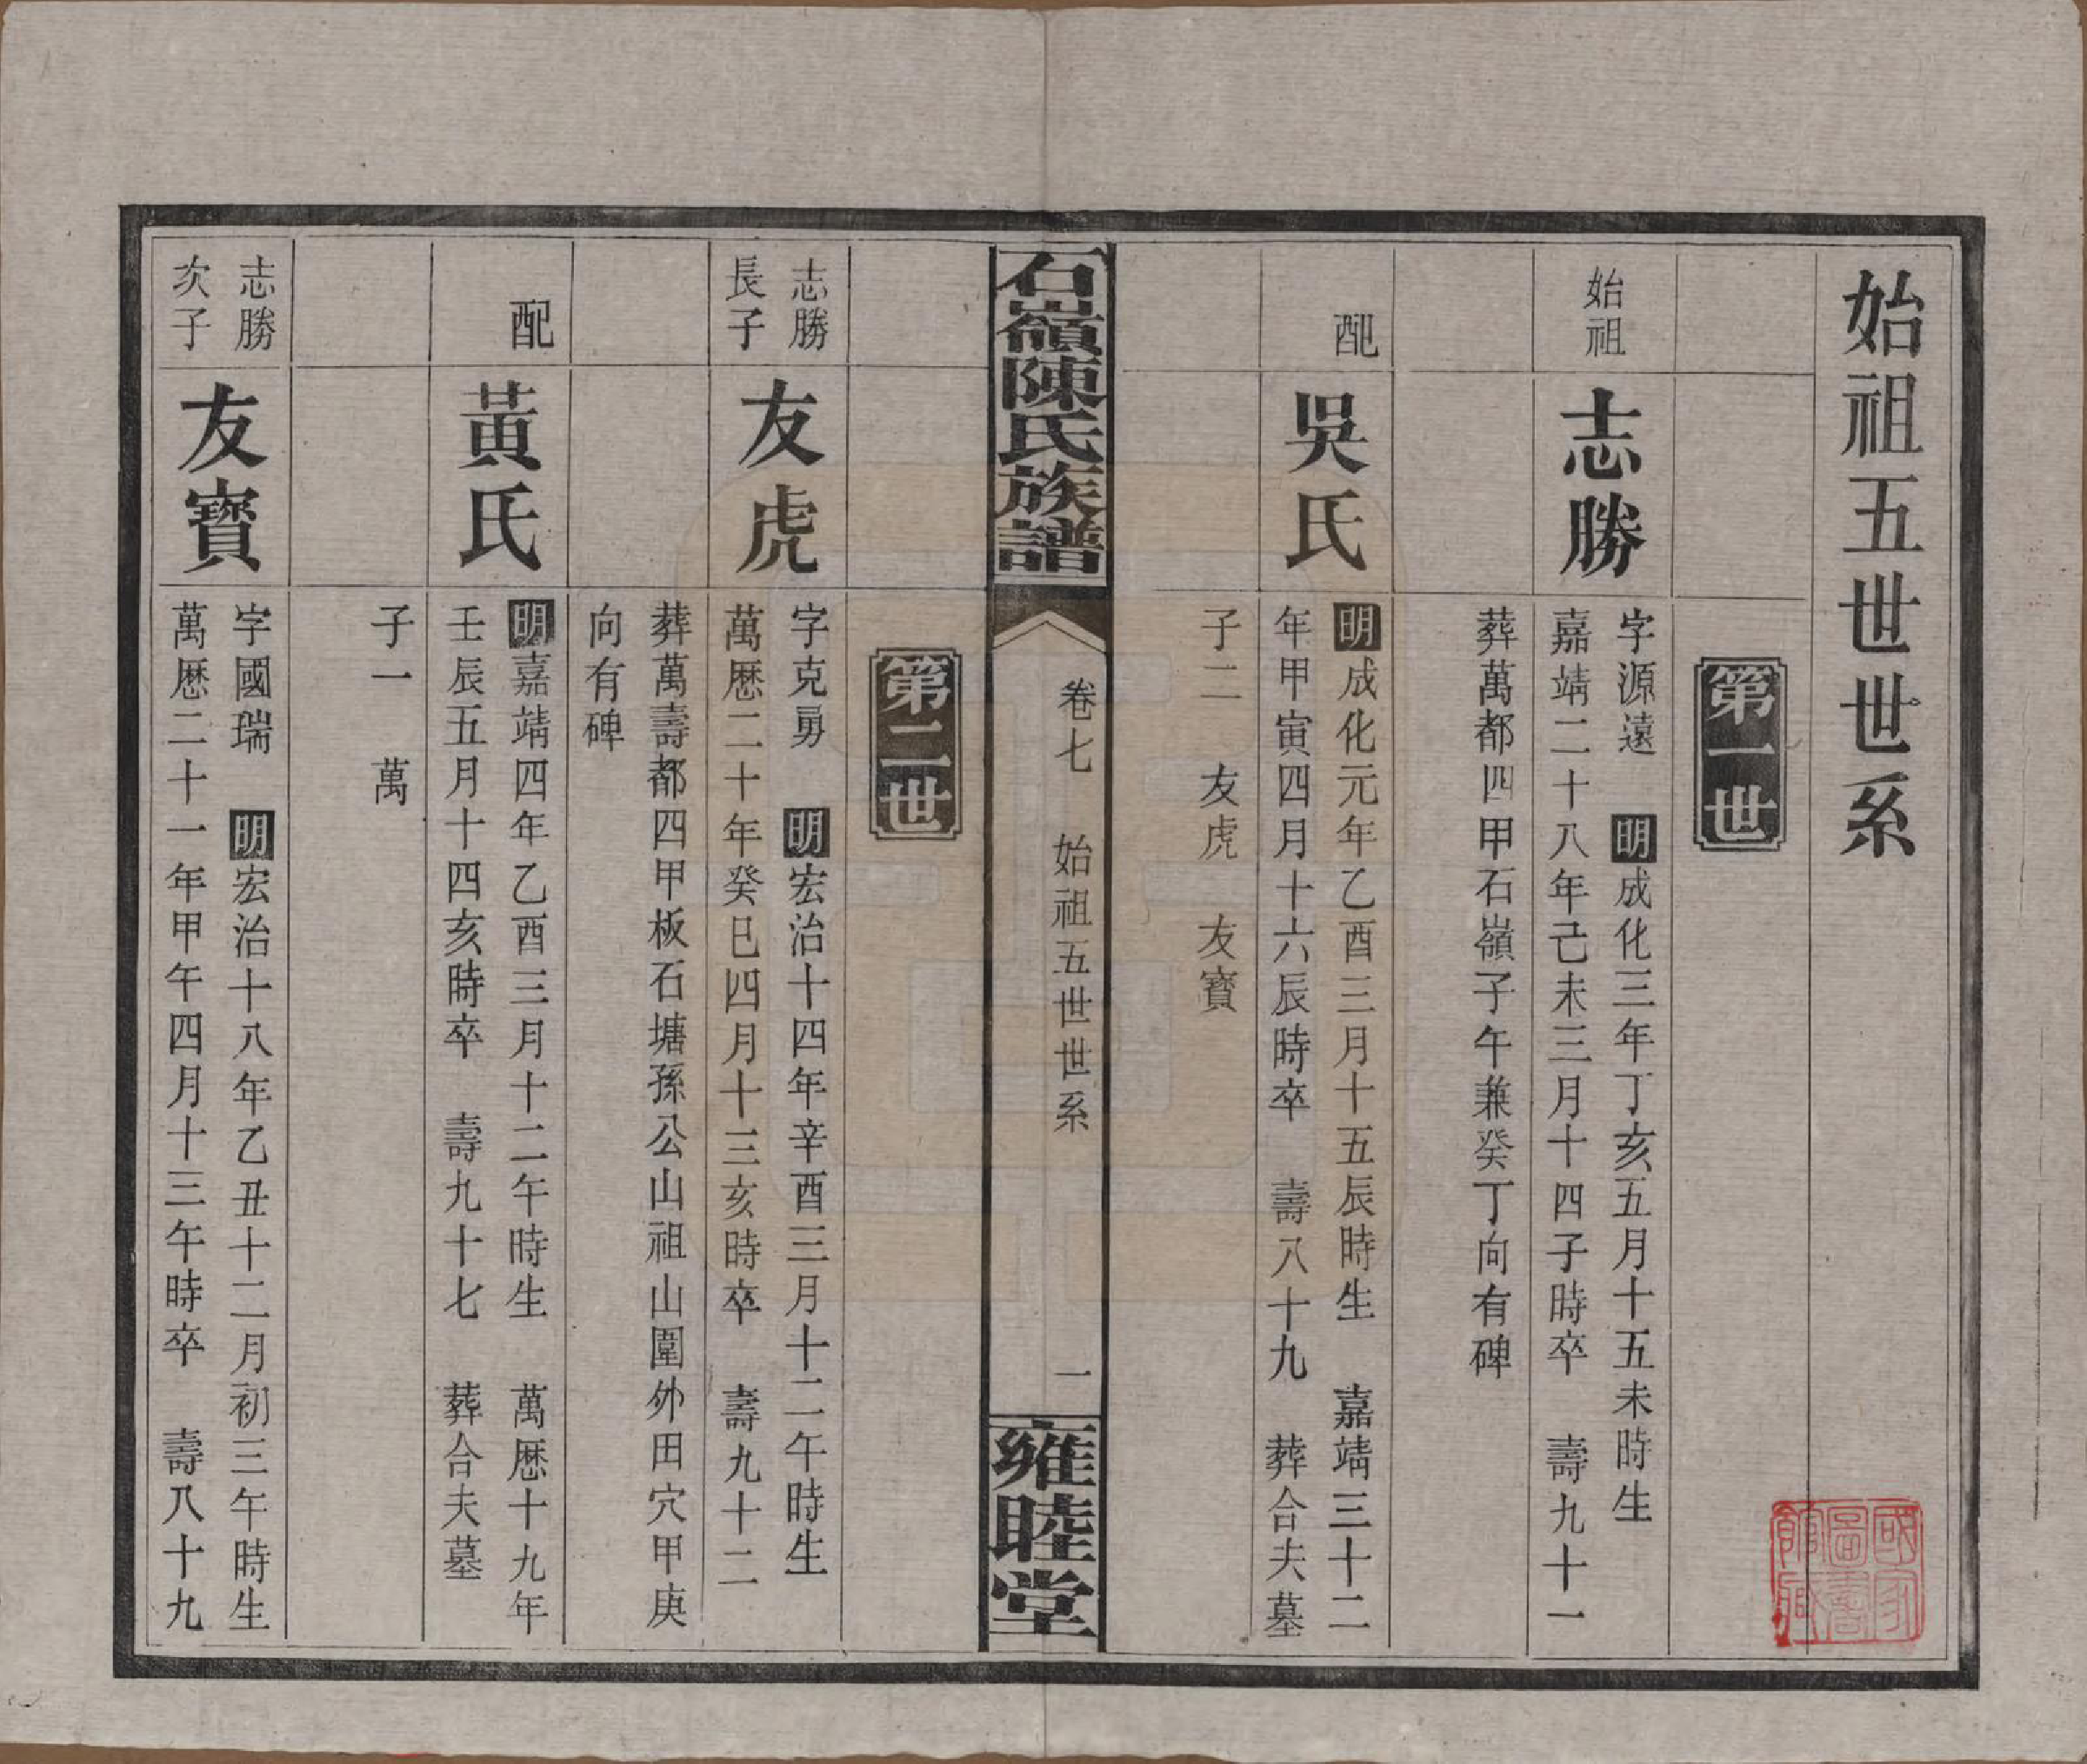 始祖五世世系
第一世
始祖
志勝
字源遠　明成化三年丁亥五月十五未時生
嘉靖二十八年己未三月十四子時卒　壽九十一
葬萬都四甲石嶺子午兼癸丁向有碑
配
吳氏
明成化元年乙酉三月十五辰時生　嘉靖三十二
年甲寅四月十六辰時卒　壽八十九　葬合夫墓
子二　友虎　友寶
石嶺陳氏族譜
卷七　始祖五世世系
一
雍睦堂
第二世
志勝
長子
友虎
字克勇　明宏治十四年辛酉三月十二午時生
萬歷二十年癸巳四月十三亥時卒　壽九十二
葬萬壽都四甲板石塘孫公山祖山圍外田穴甲庚
向有碑
配
黃氏
明嘉靖四年乙酉三月十二午時生　萬歷十九年
壬辰五月十四亥時卒　壽九十七　葬合夫墓
子一　萬
志勝
次子
友寶
字國瑞　明宏治十八年乙丑十二月初三午時生
萬歷二十一年甲午四月十三午時卒　壽八十九
國家
圖書
館藏